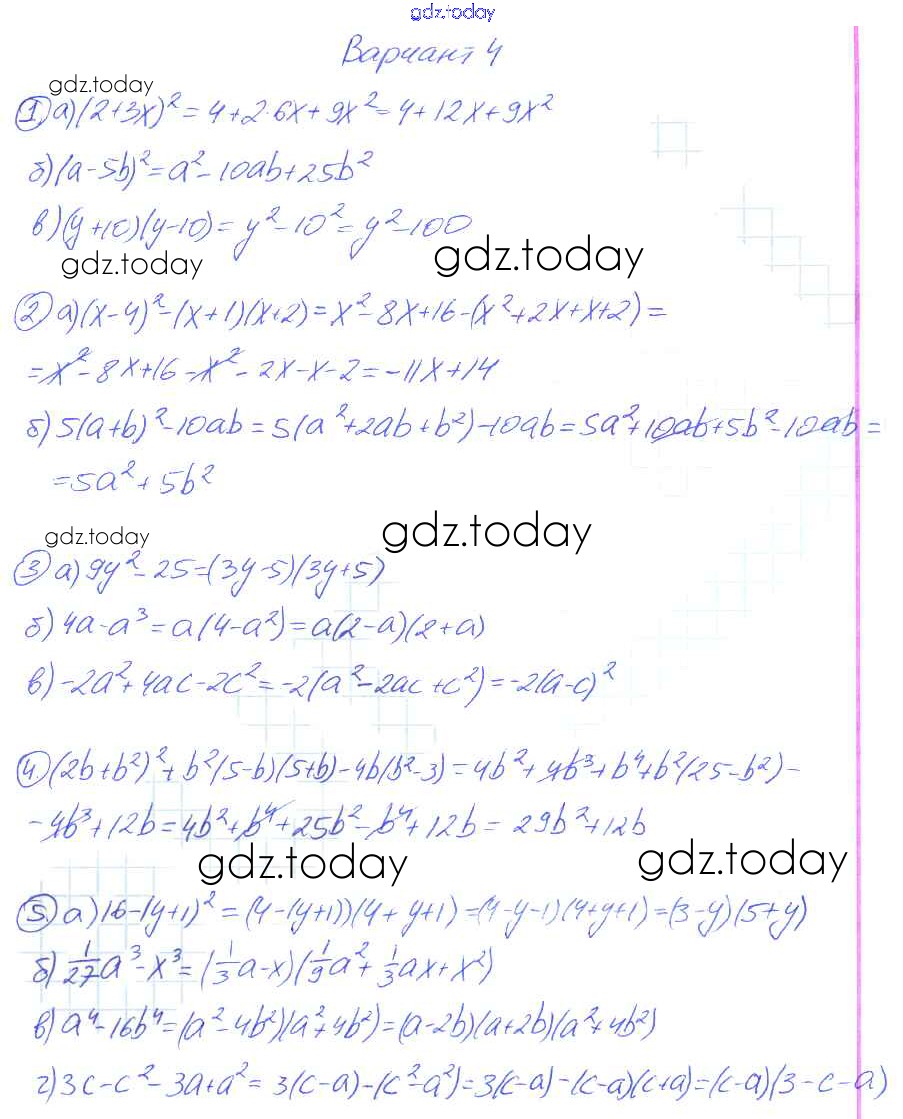 gdz.today
Вариант 4
gdz.today
① а) (2+3x)² = 4+2·6x+9x² = 4+12x+9x²
б) (a-5b)² = a²-10ab+25b²
в) (y+10)(y-10) = y²-10² = y²-100
gdz.today gdz.today
② а) (x-4)²-(x+1)(x+2) = x²-8x+16-(x²+2x+x+2) =
= x²-8x+16-x²-2x-x-2 = -11x+14
б) 5(a+b)²-10ab = 5(a²+2ab+b²)-10ab = 5a²+10ab+5b²-10ab =
= 5a²+5b²
gdz.today gdz.today
③ а) 9y²-25 = (3y-5)(3y+5)
б) 4a-a³ = a(4-a²) = a(2-a)(2+a)
в) -2a²+4ac-2c² = -2(a²-2ac+c²) = -2(a-c)²
④ (2b+b²)²+b²(5-b)(5+b)-4b(b²-3) = 4b²+4b³+b⁴+b²(25-b²)-
-4b³+12b = 4b²+b⁴+25b²-b⁴+12b = 29b²+12b
gdz.today gdz.today
⑤ а) 16-(y+1)² = (4-(y+1))(4+y+1) = (4-y-1)(4+y+1) = (3-y)(5+y)
б) 1/27a³-x³ = (1/3a-x)(1/9a²+1/3ax+x²)
в) a⁴-16b⁴ = (a²-4b²)(a²+4b²) = (a-2b)(a+2b)(a²+4b²)
г) 3c-c²-3a+a² = 3(c-a)-(c²-a²) = 3(c-a)-(c-a)(c+a) = (c-a)(3-c-a)